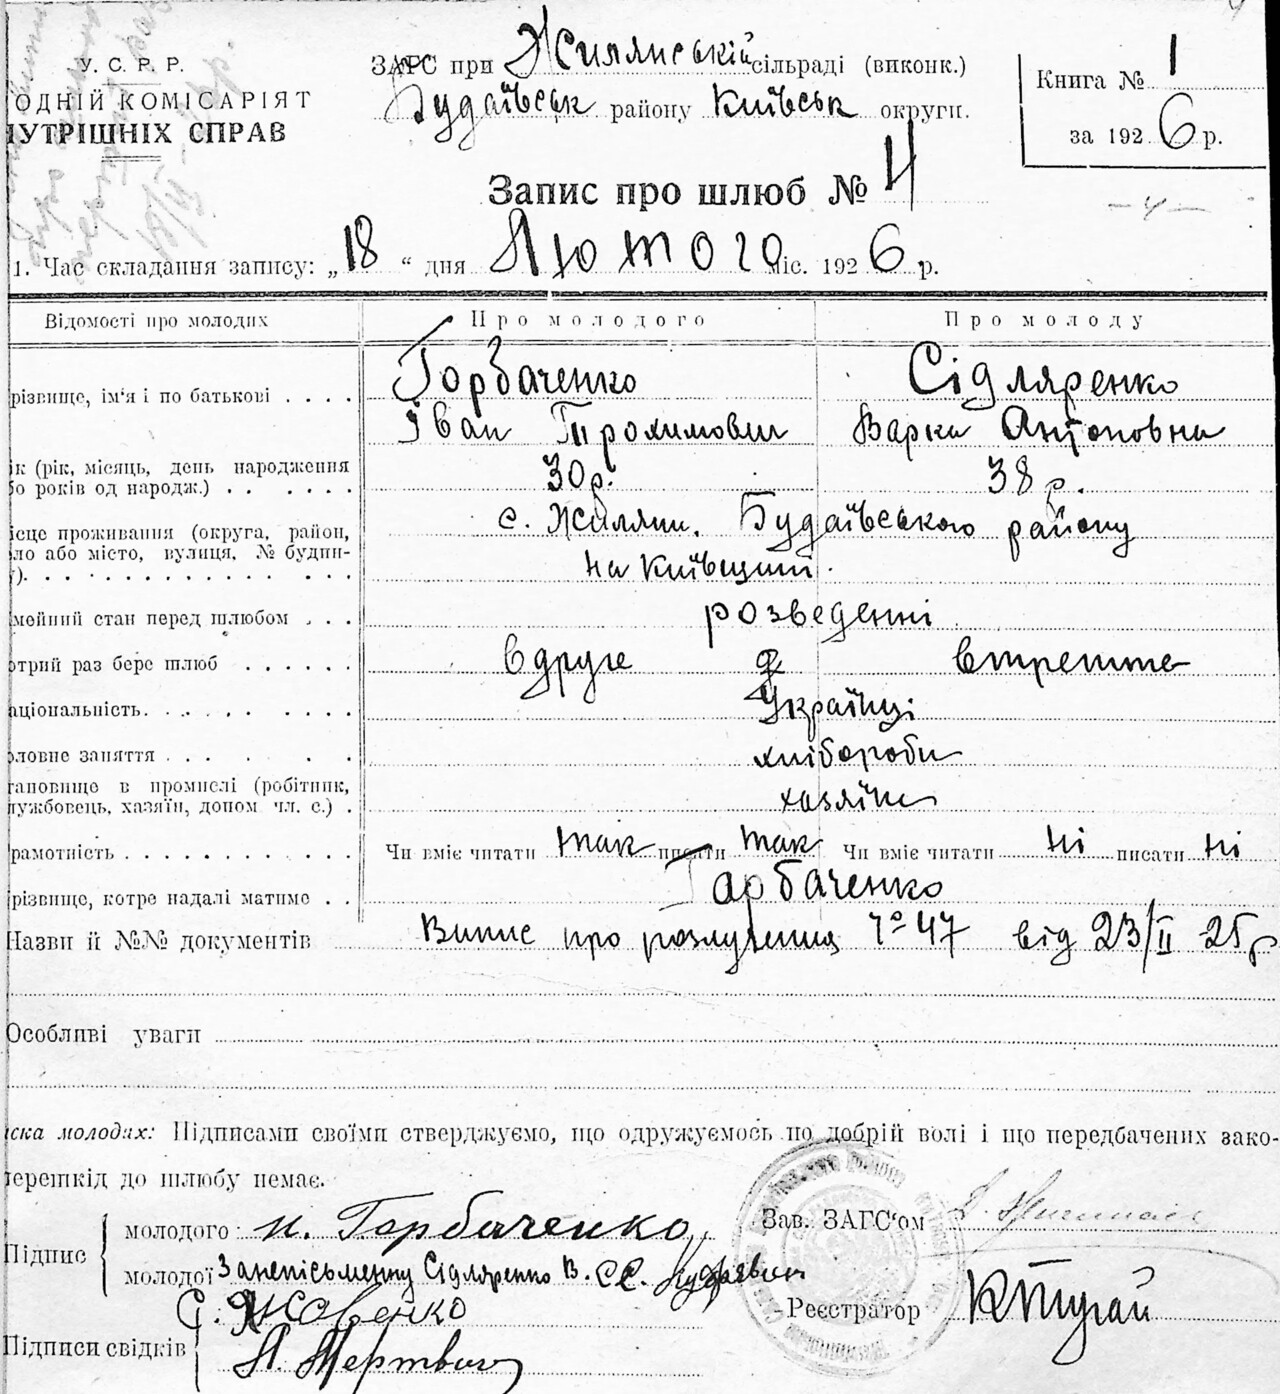 У. С. Р. Р.
ОДНІЙ КОМІСАРІЯТ
НУТРІШНІХ СПРАВ
ЗАГС при Жилянській сільраді (виконк.)
Будаївськ району Київськ округи.
Книга № 1
за 1926 р.
Запис про шлюб № 4
— 4 —
1. Час складання запису: „18“ дня Лютого міс. 1926 р.
Відомості про молодих Про молодого Про молоду
різвище, ім'я і по батькові . . . . Горбаченко Сідляренко
Іван Трохимович Варка Антоновна
ік (рік, місяць, день народження 30 р. 38 р.
бо років од народж.) . . . . . . .
ісце проживання (округа, район, с. Жиляни. Будаївського району
ло або місто, вулиця, № будин-
у). на Київщині.
мейний стан перед шлюбом . . . розведенні
отрий раз бере шлюб . . . . . . вдруге втретте
аціональність. Українці
оловне заняття хлібороби
тановище в промислі (робітник,
лужбовець, хазяїн, допом чл. с.) . хазяїни
рамотність Чи вміє читати так писати так Чи вміє читати ні писати ні
різвище, котре надалі матиме . . Горбаченко
Назви й №№ документів Випис про розлучення № 47 від 23/II 25 р
Особливі уваги
иска молодих: Підписами своїми стверджуємо, що одружуємось по добрій волі і що передбачених зако-
перешкід до шлюбу немає.
Підпис
молодого: И. Горбаченко
Зав. ЗАГС'ом
молодої За неписьменну Сідляренко В.
Реєстратор КТугай
Підписи свідків
С. Яковенко